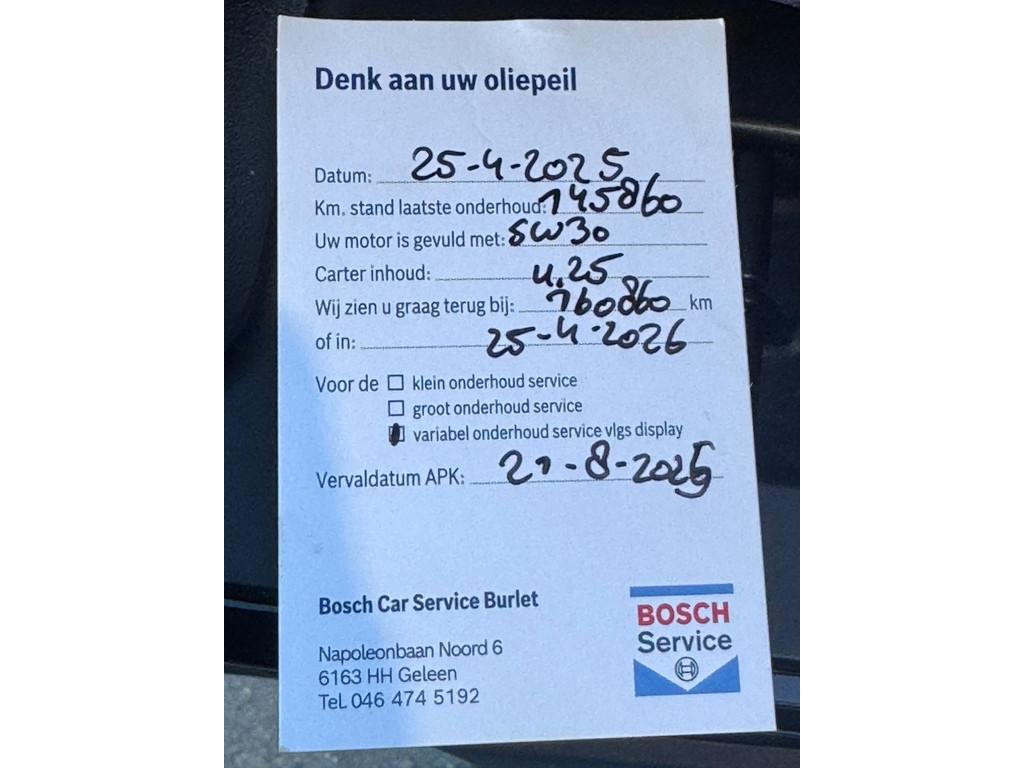 Denk aan uw oliepeil
Datum: 25-4-2025
Km. stand laatste onderhoud: 145860
Uw motor is gevuld met: 5W30
Carter inhoud: 4.25
Wij zien u graag terug bij: 160860 km
of in: 25-4-2026
Voor de ☐ klein onderhoud service
☐ groot onderhoud service
☒ variabel onderhoud service vlgs display
Vervaldatum APK: 21-8-2025
Bosch Car Service Burlet
Napoleonbaan Noord 6
6163 HH Geleen
Tel. 046 474 5192
BOSCH
Service